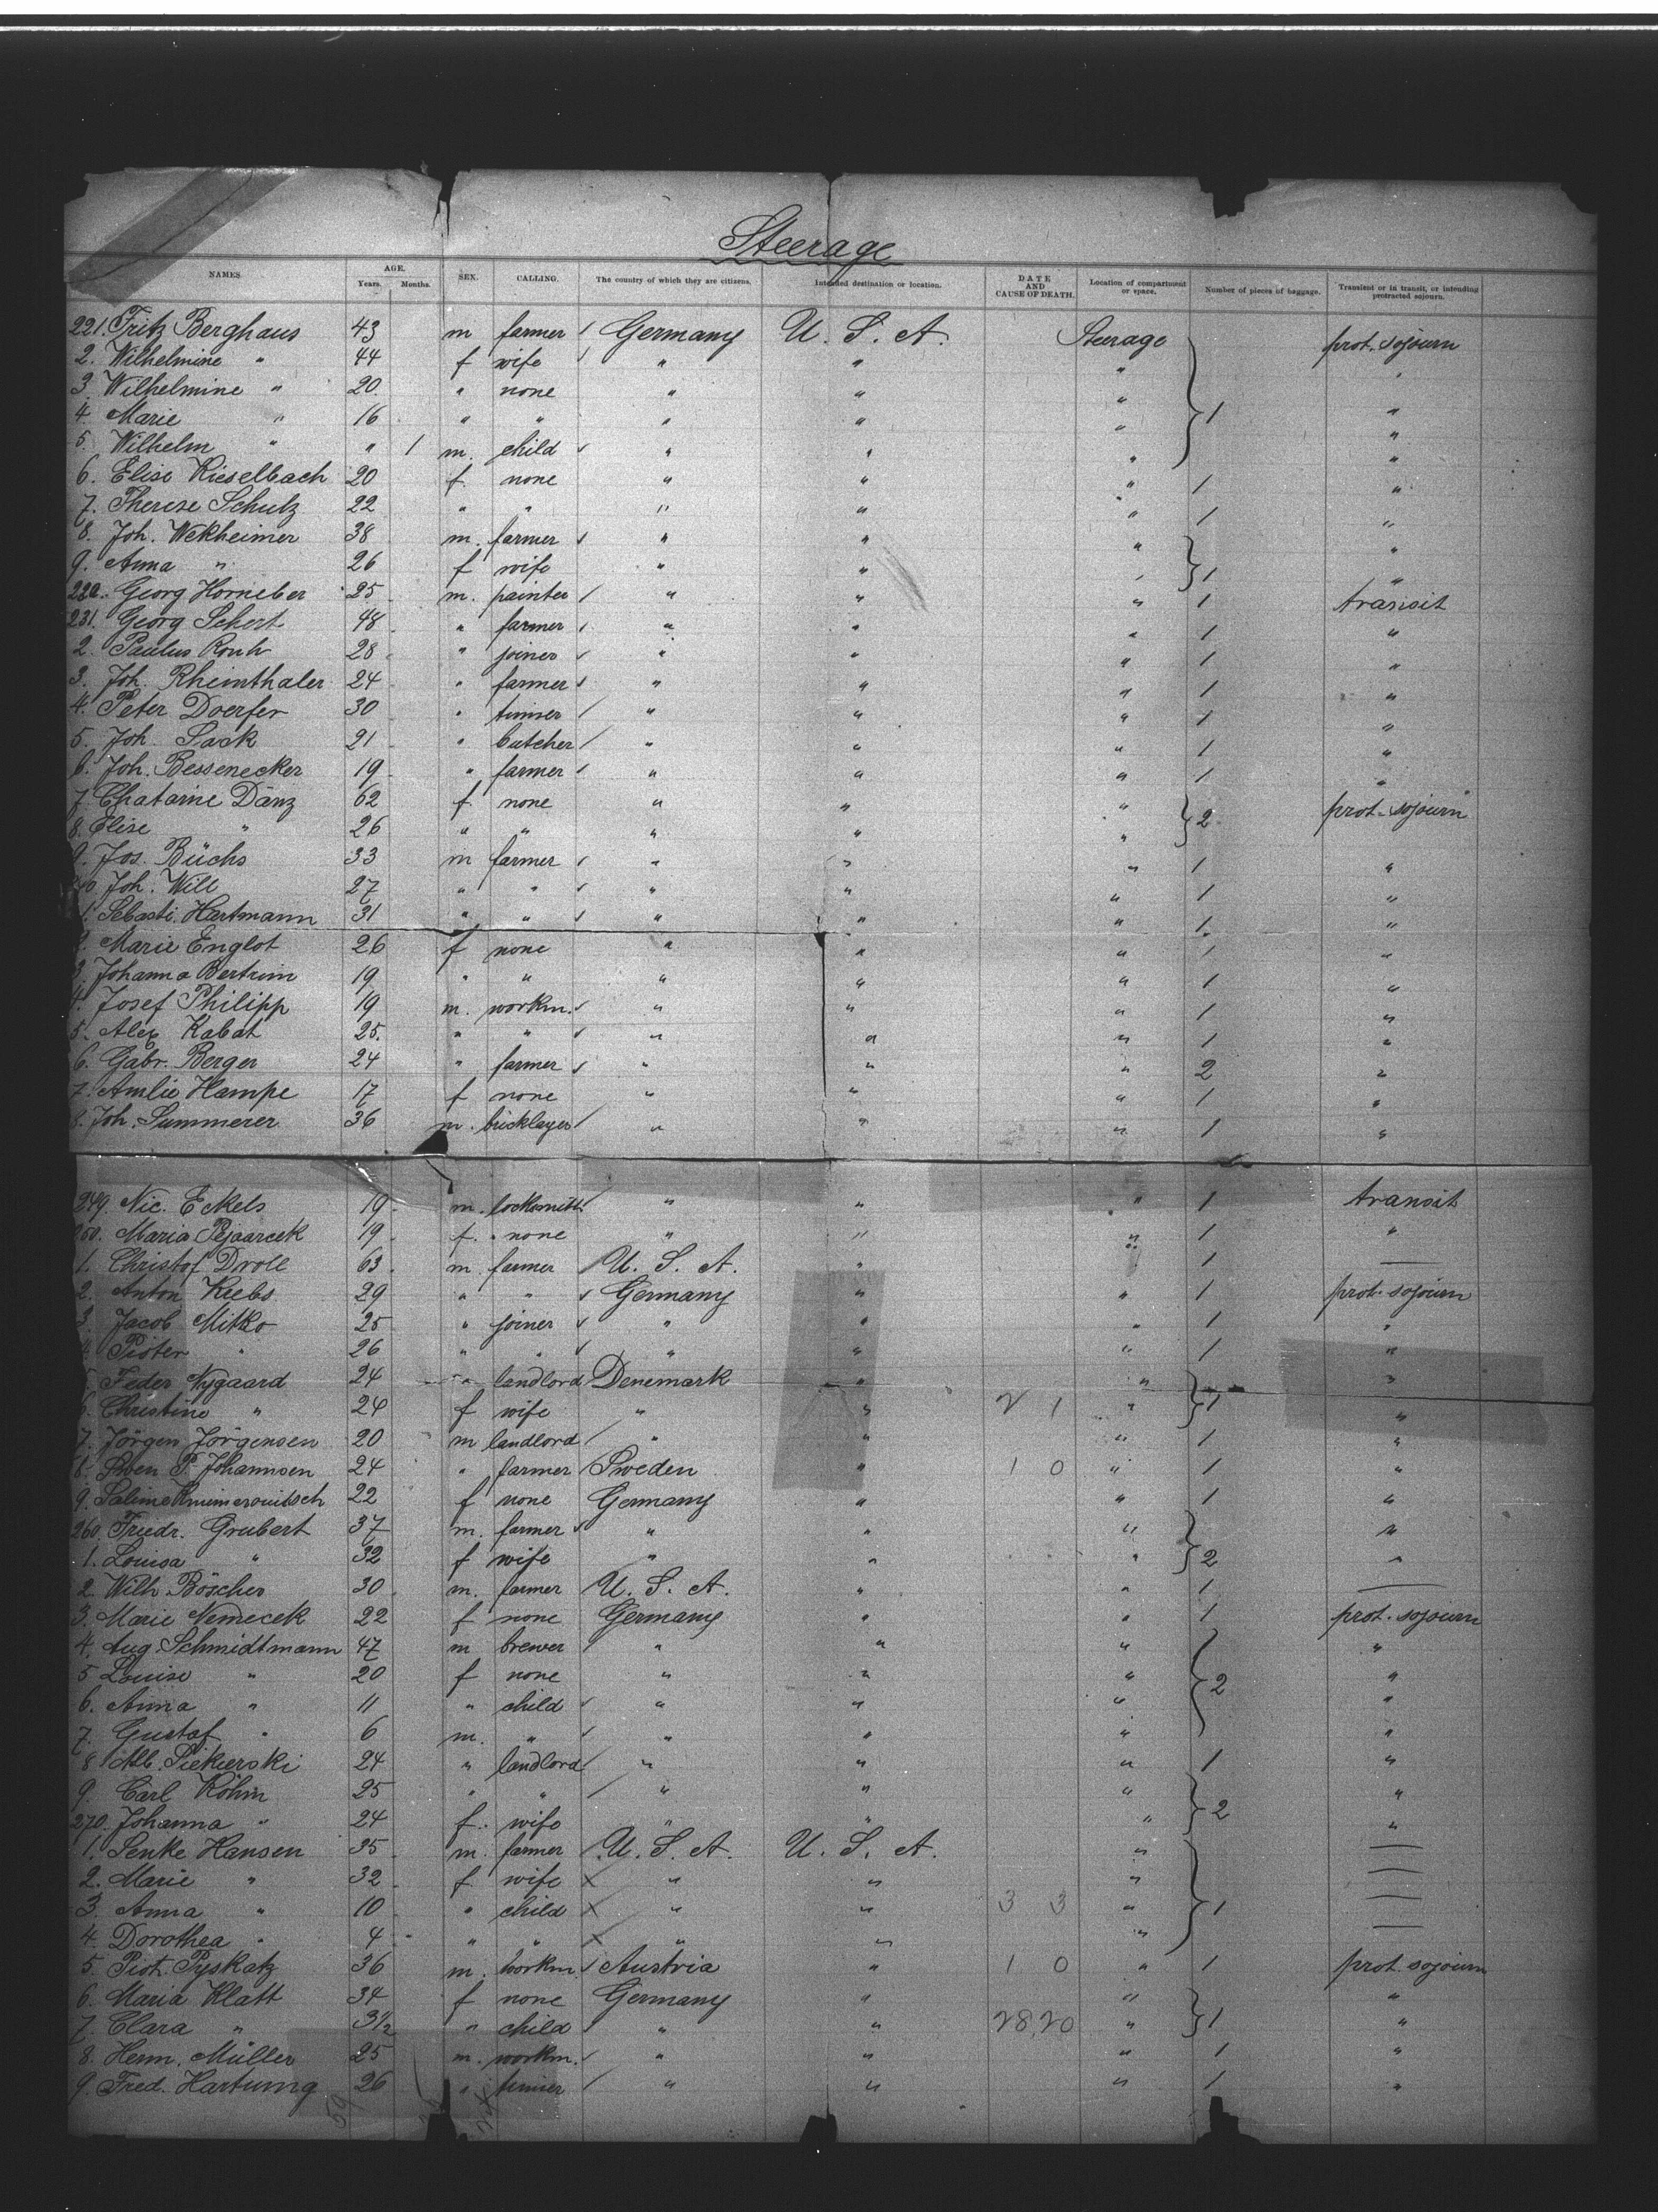 Steerage
NAMES. AGE. Years. Months. SEX. CALLING. The country of which they are citizens. Intended destination or location. DATE AND CAUSE OF DEATH. Location of compartment or space. Number of pieces of baggage. Transient or in transit, or intending protracted sojourn.
221. Fritz Berghaus 43 m farmer / Germany U. S. A. Steerage prot. sojourn
2. Wilhelmine " 44 f wife / " " " "
3. Wilhelmine " 20 " none " " " "
4. Marie " 16 " " " " " 1 "
5. Wilhelm " " 1 m. child " " " "
6. Elise Kieselbach 20 f. none " " " 1 "
7. Therese Schulz 22 " " " " " 1 "
8. Joh. Wekheimer 38 m. farmer " " " "
9. Anna " 26 f wife " " " 1 "
Georg Horneber 25 m. painter / " " " 1 transit
231. Georg Schert 48 " farmer " " " 1 "
2. Paulus 28 " joiner " " " 1 "
3. Joh. Rheinthaler 24 " farmer " " " 1 "
4. Peter Doerfer 30 " / " " " 1 "
5. Joh. Sack 21 " butcher / " " " 1 "
6. Joh. Bessenecker 19 " farmer " " " 1 "
7. Chatarine Dänz 62 f. none " " " 2 prot. sojourn
8. Elise " 26 " " " " " "
9. Jos. Büchs 33 m farmer " " " 1 "
Joh. Will 27 " " " " " 1 "
1. Sebasti. Hartmann 31 " " " " " 1. "
2. Marie Englot 26 f none " " " 1 "
3. Johanna Bertrim 19 " " " " " 1 "
4. Josef Philipp 19 m. workm. " " " 1 "
5. Alex Kabat 25. " " " " " 1 "
6. Gabr. Berger 24 " farmer " " " 2 "
7. Amlie Hampe 17 f none " " " 1 "
8. Joh. Summerer 36 m. bricklayer / " " " 1 "
249. Nic. Eckels 19 m. locksmith " " " 1 transit
250. Maria 19 f. none " " " 1 "
1. Christof Droll 63 m. farmer / U. S. A. " " 1 —
2. Anton Krebs 29 " " Germany " " 1 prot. sojourn
3. Jacob Mitko 25 " joiner " " " 1 "
4. Pioter " 26 " " " " " 1 "
5. Feder Nygaard 24 " landlord Denemark " " "
6. Christine " 24 f wife " " 2 1 " 1 "
7. Jörgen Jörgensen 20 m landlord / " " " 1 "
8. Swen P. Johannsen 24 " farmer / Sweden " 1 0 " 1 "
9. Salime 22 f none Germany " " 1 "
260. Friedr. Grubert 37 m. farmer " " " "
1. Louisa " 32 f wife " " " 2 "
2. Wilh. Böscher 30 m. farmer U. S. A. " " 1 —
3. Marie Nemecek 22 f none Germany " " 1 prot. sojourn
4. Aug. Schmidtmann 47 m brewer / " " " "
5. Louise " 20 f none " " " 2 "
6. Anna " 11 " child " " " "
7. Gustaf " 6 m. " " " " "
8. Alb. Siekierski 24 " landlord / " " " 1 "
9. Carl Röhm 25 " " / " " " "
270. Johanna " 24 f. wife " " " 2 "
1. Senke Hansen 35 m. farmer / U. S. A. U. S. A. " —
2. Marie " 32 f. wife x " " " —
3. Anna " 10 " child x " " 3 3 " 1 —
4. Dorothea " 4 " " x " " " —
5. Piot. Pyskatz 36 m. workm. Austria " 1 0 " 1 prot. sojourn
6. Maria Klatt 34 f none Germany " " "
7. Clara " 3 1/2 " child " " 28 20 " 1 "
8. Herm. Müller 25 m. workm. " " " 1 "
9. Fred. Hartung 26 " / " " " 1 "